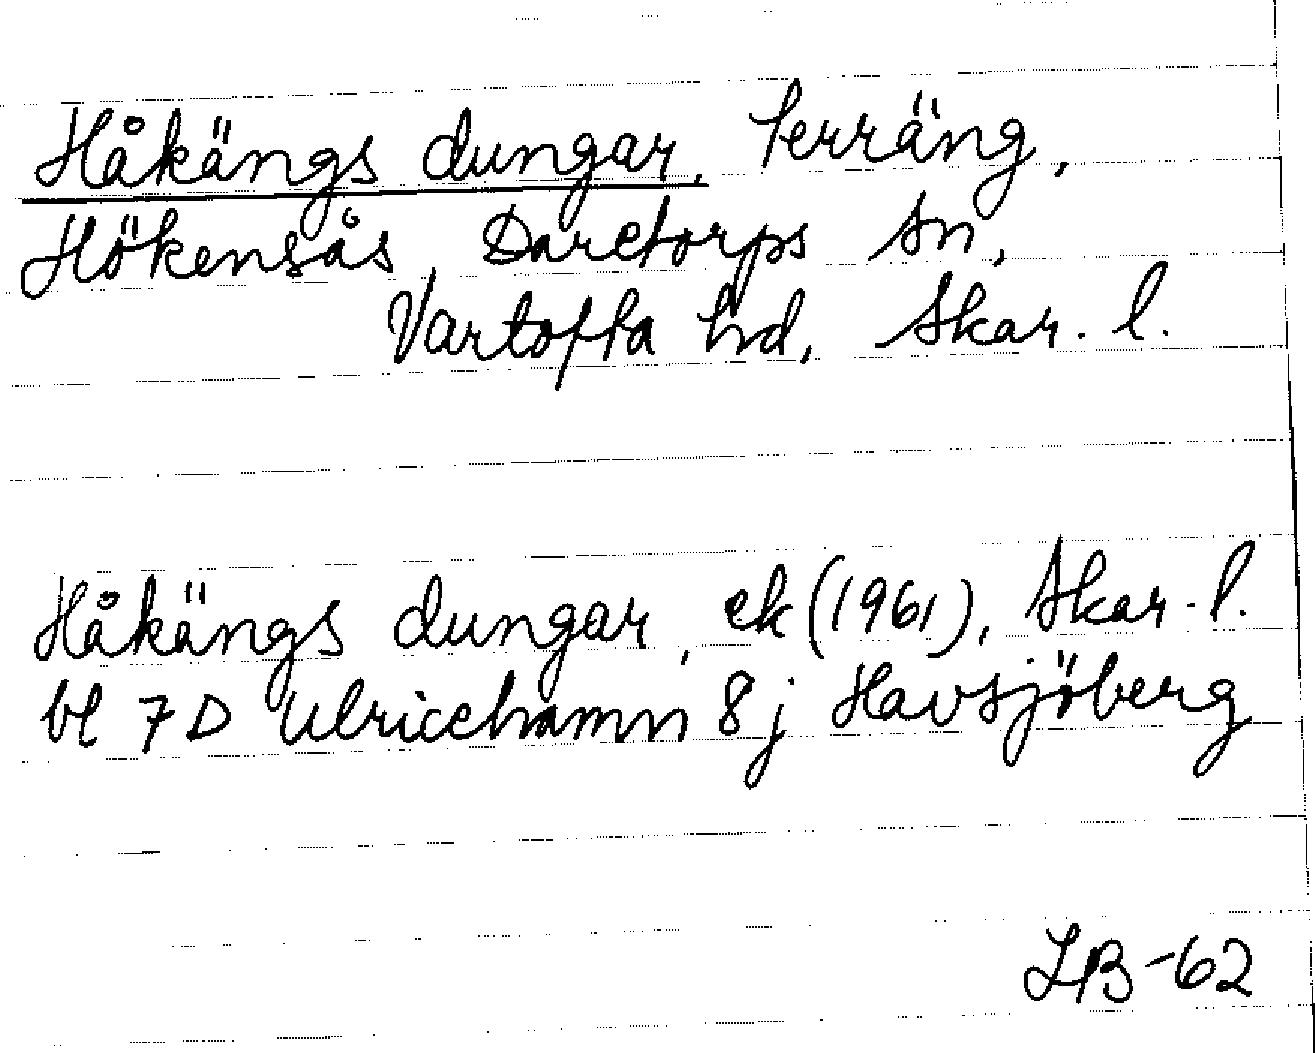 Håkängs dungar, terräng,
Hökensås, Daretorps sn,
Vartofta hd, Skar. l.
Håkängs dungar, ek (1961), Skar. l.
bl 7 D Ulricehamn 8 j Havsjöberg
LB-62